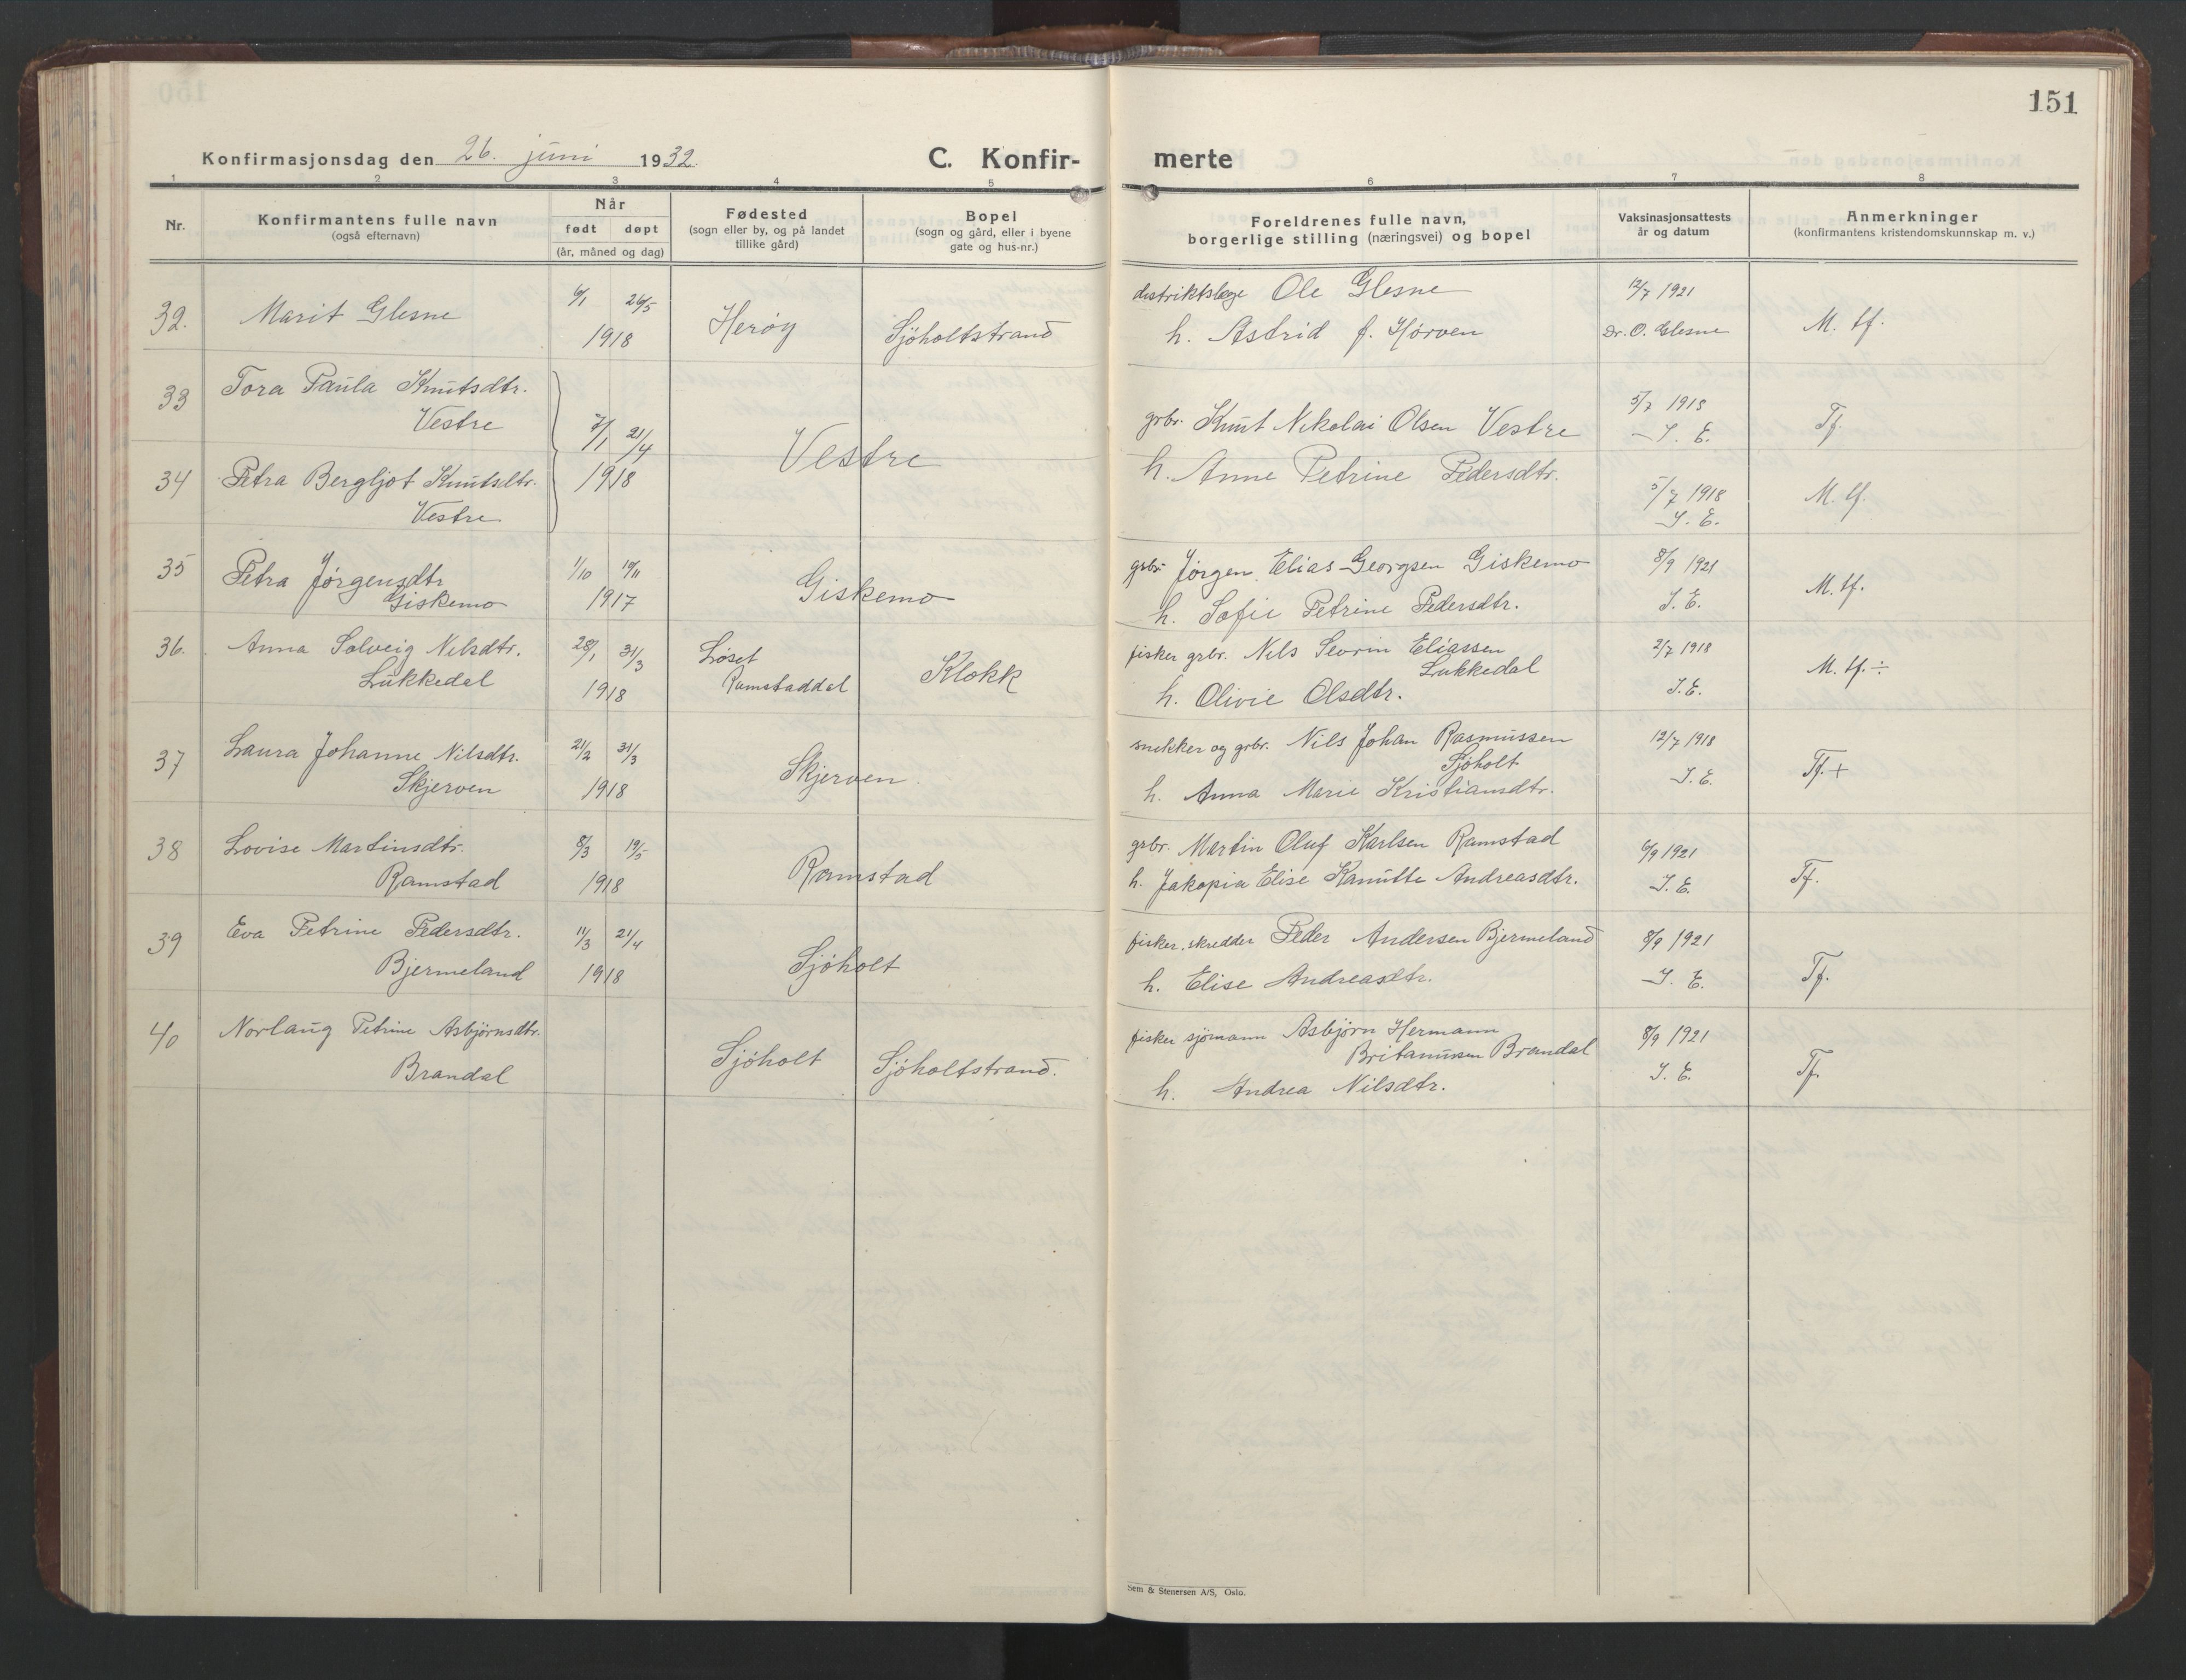 151
Konfirmasjonsdag den 26. juni 1932.
C. Konfir- merte
1 2 3 4 5 6 7 8
Nr.
Konfirmantens fulle navn
(også efternavn)
Når
født døpt
(år, måned og dag)
Fødested
(sogn eller by, og på landet
tillike gård)
Bopel
(sogn og gård, eller i byene
gate og hus-nr.)
Foreldrenes fulle navn,
borgerlige stilling (næringsvei) og bopel
Vaksinasjonsattests
år og datum
Anmerkninger
(konfirmantens kristendomskunnskap m. v.)
32. Marit Glesne 6/1 26/5 1918 Herøy Sjöholtstrand
distriktslæge Ole Glesne
h. Astrid f. Hørven
12/7 1921
Dr. O. Glesne
M. tf.
33 Tora Paula Knutsdtr.
Vestre
34 Petra Bergljot Knutsdtr.
Vestre
7/1 21/4
1918
Vestre
grbr. Knut Nikolai Olsen Vestre
h. Anne Petrine Pedersdtr.
5/7 1918
J. E.
Tf.
5/7 1918
J. E.
M. tf.
35 Petra Jørgensdtr
Giskemo
1/10 19/11
1917
Giskemo
grbr. Jørgen Elias Georgsen Giskemo
h. Sofie Petrine Pedersdtr.
8/9 1921
J. E.
M. tf.
36. Anna Solveig Nilsdtr.
Lukkedal
28/1 31/3
1918
Løset
Ramstaddal
Klokk
fisker grbr. Nils Sevrin Eliassen
Lukkedal
h. Olivie Olsdtr.
2/7 1918
J. E.
M. tf. ÷
37 Laura Johanne Nilsdtr.
Skjerven
21/2 31/3
1918
Skjerven
snekker og grbr. Nils Johan Rasmussen
Sjöholt
h. Anna Marie Kristiansdtr.
12/7 1918
J. E.
Tf. +
38 Lovise Martinsdtr.
Ramstad
8/3 19/5
1918
Ramstad
grbr. Martin Oluf Karlsen Ramstad
h. Jakopia Elise Kanutte Andreasdtr.
6/9 1921
J. E.
Tf.
39 Eva Petrine Pedersdtr.
Bjermeland
11/3 21/4
1918
Sjöholt
fisker, skredder Peder Andersen Bjermeland
h. Elise Andreasdtr.
8/9 1921
J. E.
Tf.
40 Norlaug Petrine Asbjørnsdtr.
Brandal
Sjöholt Sjöholtstrand.
fisker sjömann Asbjørn Hermann
Britanusen Brandal
h. Andrea Nilsdtr.
8/9 1921
J. E.
Tf.
Sem & Stenersen A/S, Oslo.